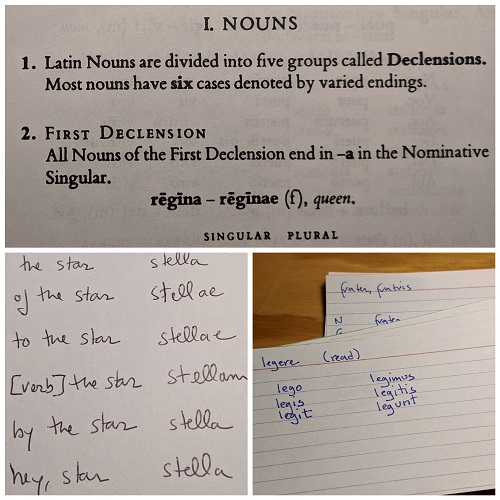 I. NOUNS
1. Latin Nouns are divided into five groups called Declensions.
Most nouns have six cases denoted by varied endings.
2. FIRST DECLENSION
All Nouns of the First Declension end in –a in the Nominative
Singular.
rēgīna – rēgīnae (f), queen.
SINGULAR PLURAL
the star stella
of the star stellae
to the star stellae
[verb] the star stellam
by the star stella
hey, star stella
frater, fratris
N frater
G
legere (read)
lego legimus
legis legitis
legit legunt